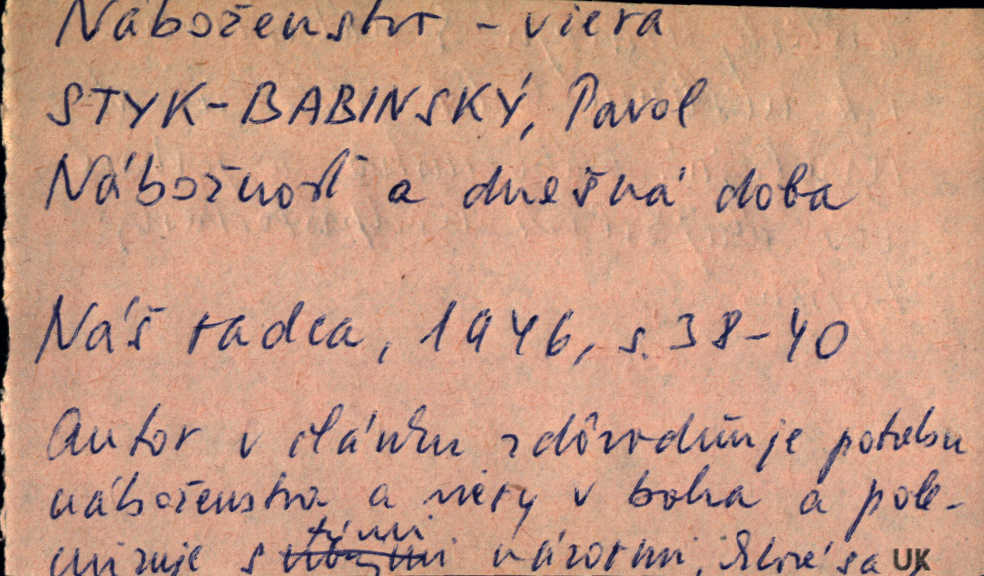 Náboženstvo - viera
STYK-BABINSKÝ, Pavol
Nábožnosť a dnešná doba
Náš radca, 1946, s. 38-40
Autor v článku zdôvodňuje potrebu
náboženstva a viery v boha a pole-
mizuje s tými názormi, ktoré sa
UK